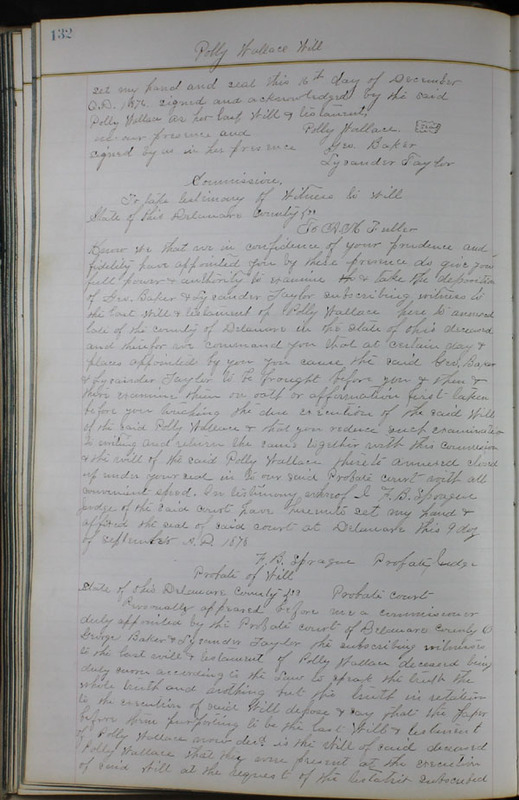 132
Polly Wallace Will
set my hand and seal this 6th day of December
A.D. 1876. signed and acknowledged by the said
Polly Wallace as her last Will & testament,
in our presence and Polly Wallace. Seal
signed by us in her presence Geo. Baker
Lycander Taylor
Commission.
To take testimony of Witness to Will
State of Ohio Delaware County ss
To A H Fuller
Know ye that we in confidence of your prudence and
fidelity have appointed you by these presence do give you
full power & authority to examine & take the deposition
of Geo. Baker & Lycander Taylor subscribing witness to
the last Will & testament of Polly Wallace here to annexed
late of the county of Delaware in the State of Ohio deceased
and therefor we command you that at certain day &
places appointed by you you cause the said Geo. Baker
& Lycander Taylor to be brought before you & then &
there examine them on oath or affirmation first taken
before you touching the due execution of the said Will
of the said Polly Wallace & that you reduce such examination
to writing and return the same together with this commission
& the will of the said Polly Wallace thereto annexed closed
up under your seal in to our said Probate court with all
convenient speed. In testimony whereof I F. B. Sprague
judge of the said court have hereunto set my hand &
affixed the seal of said court at Delaware this 9 day
of September A.D. 1878
F. B. Sprague Probate Judge
Probate of Will
State of Ohio Delaware County ss Probate court
Personally appeared before me a commissioner
duly appointed by the Probate court of Delaware County O
George Baker & Lycander Taylor the subscribing witnesses
to the last will & testament of Polly Wallace deceased being
duly sworn according to the Law to speak the truth the
whole truth and nothing but the truth in relation
to the execution of said Will depose & say that the paper
before them purporting to be the last Will & testament
of Polly Wallace now decd is the Will of said deceased
Polly Wallace that they were present at the execution
of said Will at the request of the testatrix subscribed